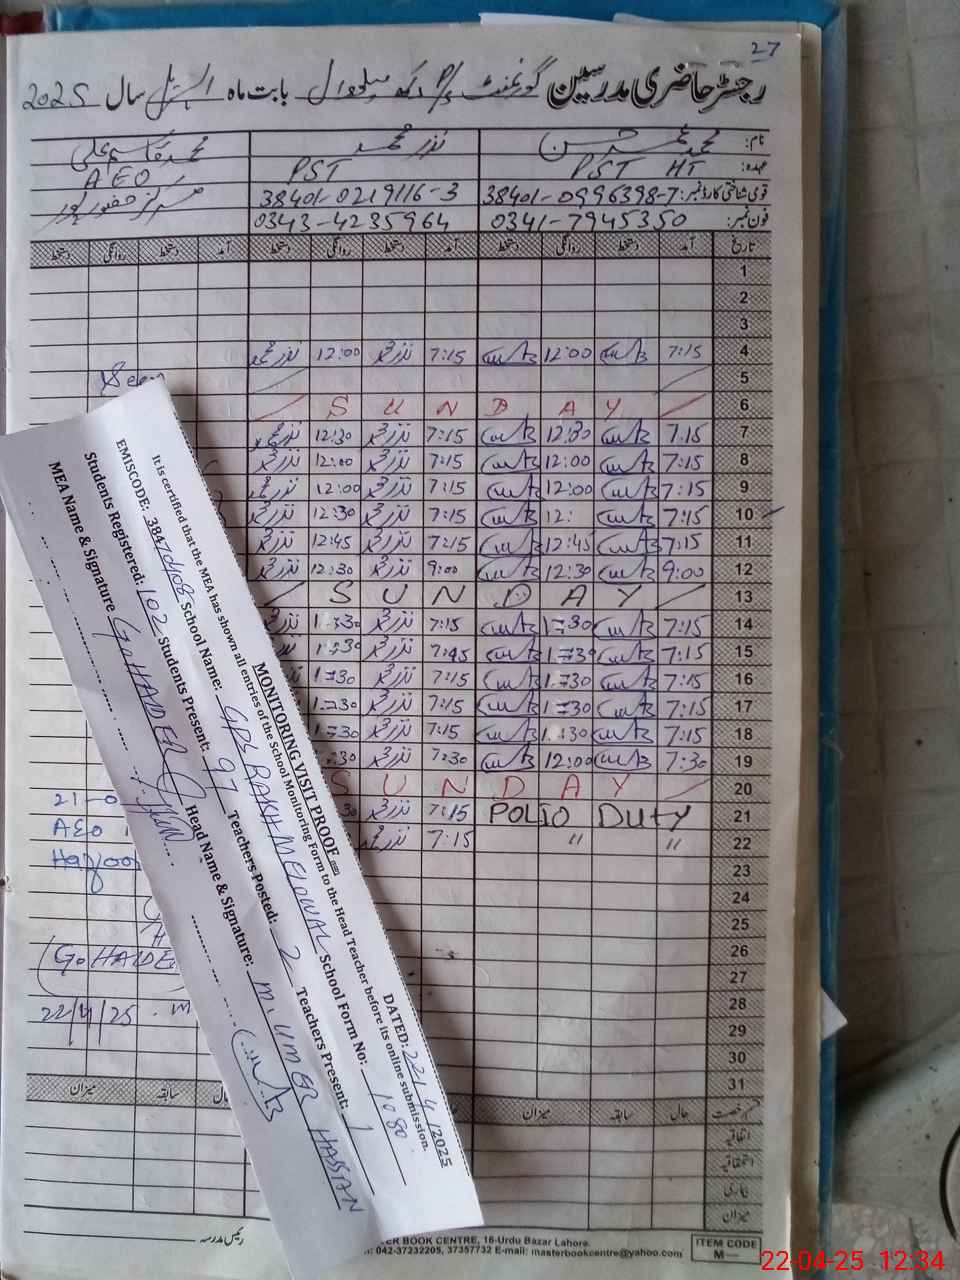 27
رجسٹر حاضری مدرسین گورنمنٹ P/S رکھ میلووال بابت ماہ اپریل سال 2025
نام: محمد عمر حسن نذر محمد محمد قاسم علی
عہدہ: PST HT PST AEO
قومی شناختی کارڈ نمبر: 38401-0996398-7 38401-0219116-3 مرکز حضور پور
فون نمبر: 0341-7945350 0343-4235964
تاریخ آمد دستخط روانگی دستخط آمد دستخط روانگی دستخط آمد دستخط روانگی دستخط
1
2
3
4 7:15 12:00 7:15 نذر محمد 12:00 نذر محمد
5
6 S U N D A Y
7 7:15 12:30 7:15 نذر محمد 12:30 نذر محمد
8 7:15 12:00 7:15 نذر محمد 12:00 نذر محمد
9 7:15 12:00 7:15 نذر محمد 12:00 نذر محمد
10 7:15 12: 7:15 نذر محمد 12:30 نذر محمد
11 7:15 12:45 7:15 نذر محمد 12:45 نذر محمد
12 9:00 12:30 9:00 نذر محمد 12:30 نذر محمد
13 S U N D A Y
14 7:15 1:30 7:15 نذر محمد 1:30
15 7:15 1:30 7:45 نذر محمد 1:30
16 7:15 1:30 7:15 نذر محمد 1:30
17 7:15 1:30 7:15 نذر محمد 1:30
18 7:15 1:30 7:15 نذر محمد 1:30
19 7:30 12:00 7:30 نذر محمد :30
20 S U N D A Y
21 POLIO DUTY 7:15 نذر محمد 30
22 " " 7:15 نذر محمد
23
24
25
26
27
28
29
30
31
21-0
AEO
(Go HAIDE
22/4/25
قسم رخصت حال سابقہ میزان سابقہ میزان
اتفاقیہ
استحقاقیہ
بیماری
میزان
رئیس مدرسہ
MONITORING VISIT PROOF
DATED: 22/4/2025
It is certified that the MEA has shown all entries of the School Monitoring Form to the Head Teacher before its online submission.
EMISCODE: 38470408 School Name: GPS RAKH MELOWAL School Form No: 1080
Students Registered: 102 Students Present: 97 Teachers Posted: 2 Teachers Present: 1
MEA Name & Signature G. HAIDER Head Name & Signature: M. UMER HASSAN
ER BOOK CENTRE, 16-Urdu Bazar Lahore.
: 042-37232205, 37357732 E-mail: masterbookcentre@yahoo.com
ITEM CODE
M—
22-04-25 12:34